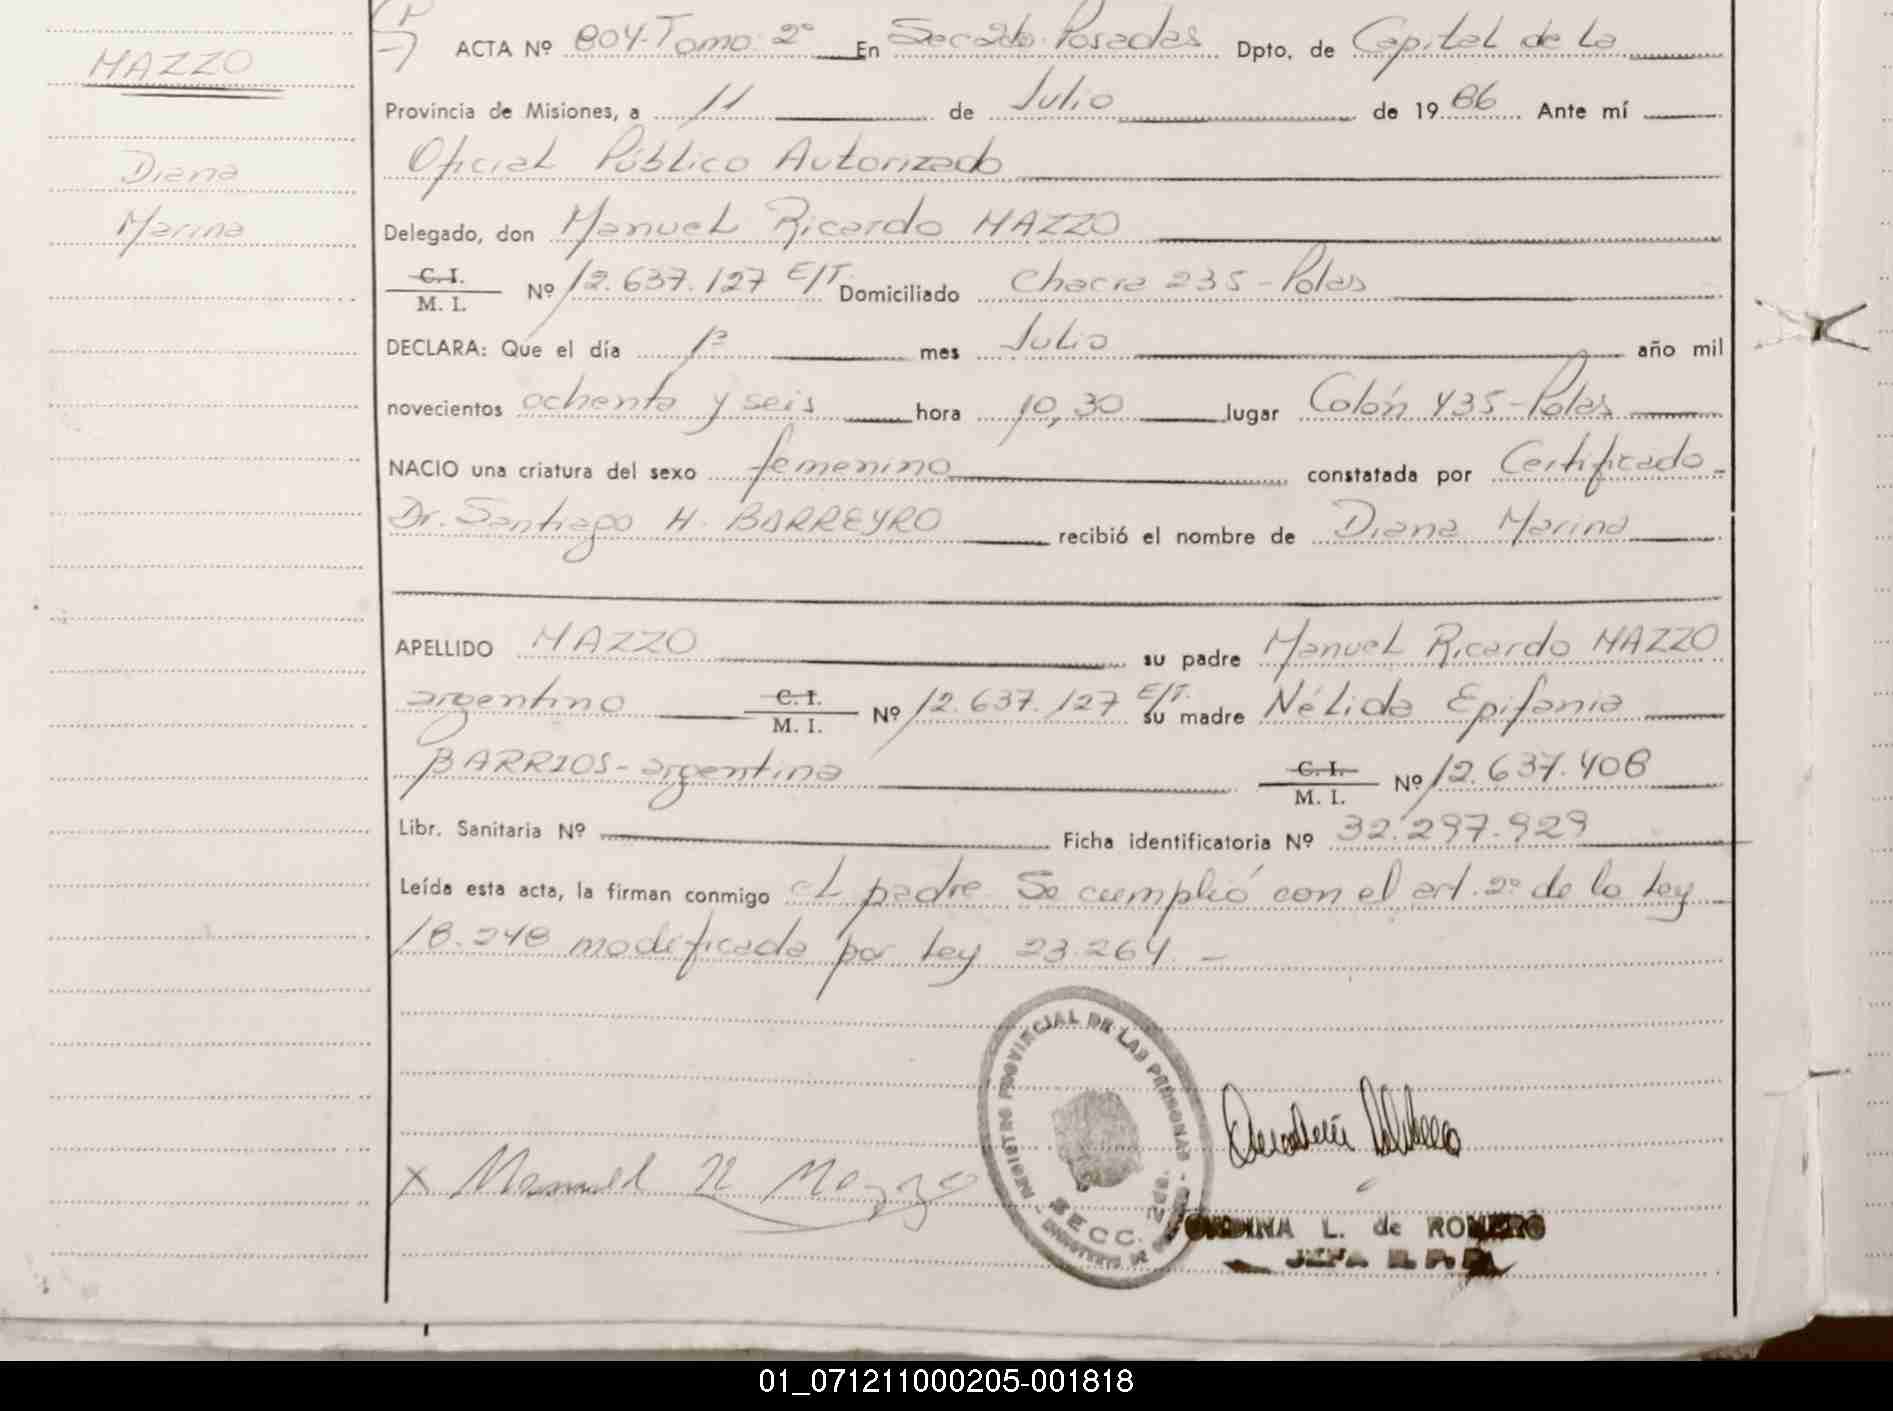 MAZZO
Diana
Marina
ACTA Nº 804-Tomo 2º En Sec 2da. Posadas Dpto, de Capital de La
Provincia de Misiones, a 11 de Julio de 1986 Ante mí
Oficial Público Autorizado
Delegado, don Manuel Ricardo MAZZO
C. I.
M. I. Nº 12.637.127 E/T. Domiciliado Chacra 235-Pdas
DECLARA: Que el día 1º mes Julio año mil
novecientos ochenta y seis hora 10,30 lugar Colón 435-Pdas
NACIO una criatura del sexo femenino constatada por Certificado
Dr. Santiago H. BARREYRO recibió el nombre de Diana Marina
APELLIDO MAZZO su padre Manuel Ricardo MAZZO
argentino C. I.
M. I. Nº 12.637.127 E/T. su madre Nélida Epifania
BARRIOS-argentina C. I.
M. I. Nº 12.637.408
Libr. Sanitaria Nº Ficha identificatoria Nº 32.297.929
Leída esta acta, la firman conmigo el padre Se cumplió con el art. 2º de la Ley
18.248 modificada por Ley 23.264. -
REGISTRO PROVINCIAL DE LAS PERSONAS
SECC. 2da.
x Manuel R Mazzo
L. de ROMERO
JEFA R. P. P.
01_071211000205-001818